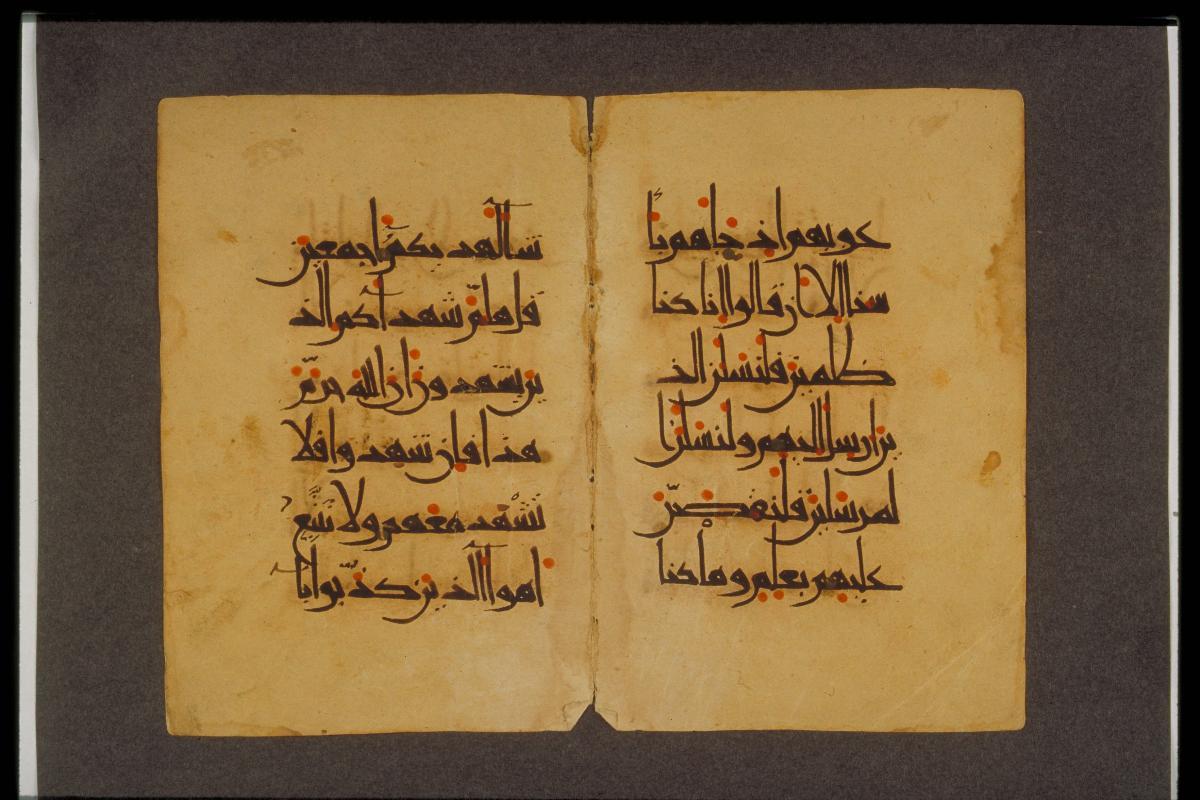 دعويهم اذ جاهم با
سنا الا ان قالوا انا كنا
ظلمين فلنسلن الذ
ين ارسل اليهم ولنسلن ا
لمرسلين فلنقصن
عليهم بعلم وما كنا
شآ لهديكم اجمعين
قل هلم شهدآكم الذ
ين يشهدون ان الله حرم
هذا فان شهدوا فلا
تشهد معهم ولا تتبع
اهوآ الذين كذبوا بايا